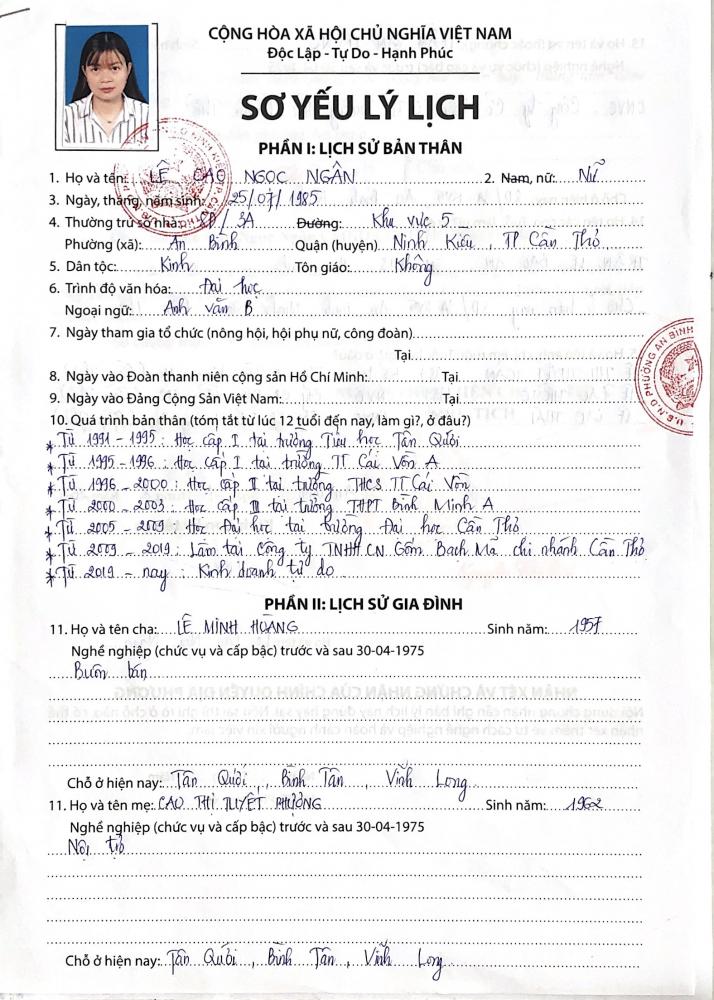 CỘNG HÒA XÃ HỘI CHỦ NGHĨA VIỆT NAM
Độc Lập - Tự Do - Hạnh Phúc
SƠ YẾU LÝ LỊCH
PHẦN I: LỊCH SỬ BẢN THÂN
1. Họ và tên: LÊ CAO NGỌC NGÂN 2. Nam, nữ: Nữ
3. Ngày, tháng, năm sinh: 25/07/1985
4. Thường trú số nhà: CD/3A Đường: Khu vực 5
Phường (xã): An Bình Quận (huyện) Ninh Kiều, TP Cần Thơ
5. Dân tộc: Kinh Tôn giáo: Không
6. Trình độ văn hóa: Đại học
Ngoại ngữ: Anh văn B
7. Ngày tham gia tổ chức (nông hội, hội phụ nữ, công đoàn)
Tại
8. Ngày vào Đoàn thanh niên cộng sản Hồ Chí Minh: Tại
9. Ngày vào Đảng Cộng Sản Việt Nam: Tại
10. Quá trình bản thân (tóm tắt từ lúc 12 tuổi đến nay, làm gì?, ở đâu?)
* Từ 1991 - 1995: Học cấp I tại trường Tiểu học Tân Quới
* Từ 1995 - 1996: Học cấp I tại trường TT Cái Vồn A
* Từ 1996 - 2000: Học cấp II tại trường THCS TT Cái Vồn
* Từ 2000 - 2003: Học cấp III tại trường THPT Bình Minh A
* Từ 2005 - 2009: Học Đại học tại trường Đại học Cần Thơ
* Từ 2009 - 2019: Làm tại Công ty TNHH CN Gốm Bạch Mã chi nhánh Cần Thơ
* Từ 2019 - nay: Kinh doanh tự do
PHẦN II: LỊCH SỬ GIA ĐÌNH
11. Họ và tên cha: LÊ MINH HOÀNG Sinh năm: 1957
Nghề nghiệp (chức vụ và cấp bậc) trước và sau 30-04-1975
Buôn bán
Chỗ ở hiện nay: Tân Quới, Bình Tân, Vĩnh Long
11. Họ và tên mẹ: CAO THỊ TUYẾT PHƯỢNG Sinh năm: 1962
Nghề nghiệp (chức vụ và cấp bậc) trước và sau 30-04-1975
Nội trợ
Chỗ ở hiện nay: Tân Quới, Bình Tân, Vĩnh Long
U.B.N.D PHƯỜNG AN BÌNH